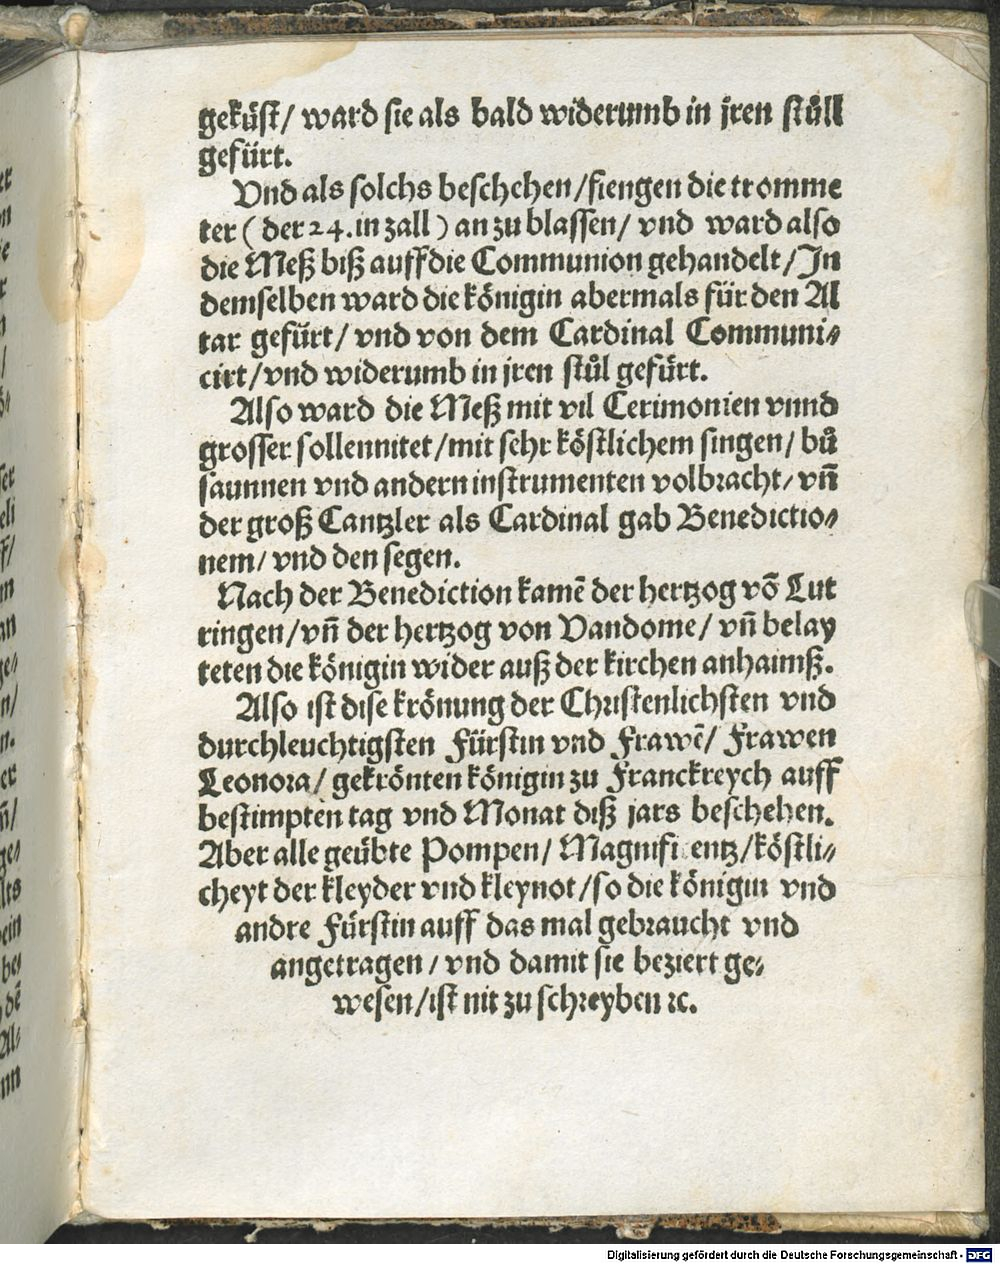 geküst/ ward sie als bald widerumb in jren stůll
gefürt.
Vnd als solchs beschehen/fiengen die tromme
ter ( der 24. in zall ) an zu blassen/ vnd ward also
die Meß biß auff die Communion gehandelt/Jn
demselben ward die königin abermals für den Al
tar gefürt/ vnd von dem Cardinal Communi⸗
cirt/vnd widerumb in jren stůl gefürt.
Also ward die Meß mit vil Cerimonien vnnd
grosser sollennitet/mit sehr köstlichem singen/ bů
saunnen vnd andern instrumenten volbracht/ vñ
der groß Cantzler als Cardinal gab Benedictio⸗
nem/ vnd den segen.
Nach der Benediction kamē der hertzog võ Lut
ringen/vñ der hertzog von Vandome/ vñ belay
teten die königin wider auß der kirchen anhaimß.
Also ist dise krönung der Christenlichsten vnd
durchleuchtigsten Fürstin vnd Frawē/ Frawen
Leonora/ gekrönten königin zu Franckreych auff
bestimpten tag vnd Monat diß jars beschehen.
Aber alle geübte Pompen/ Magnifi entz/köstli⸗
cheyt der kleyder vnd kleynot/so die königin vnd
andre Fürstin auff das mal gebraucht vnd
angetragen/ vnd damit sie beziert ge⸗
wesen/ist nit zu schreyben ꝛc.
Digitalisierung gefördert durch die Deutsche Forschungsgemeinschaft - DFG